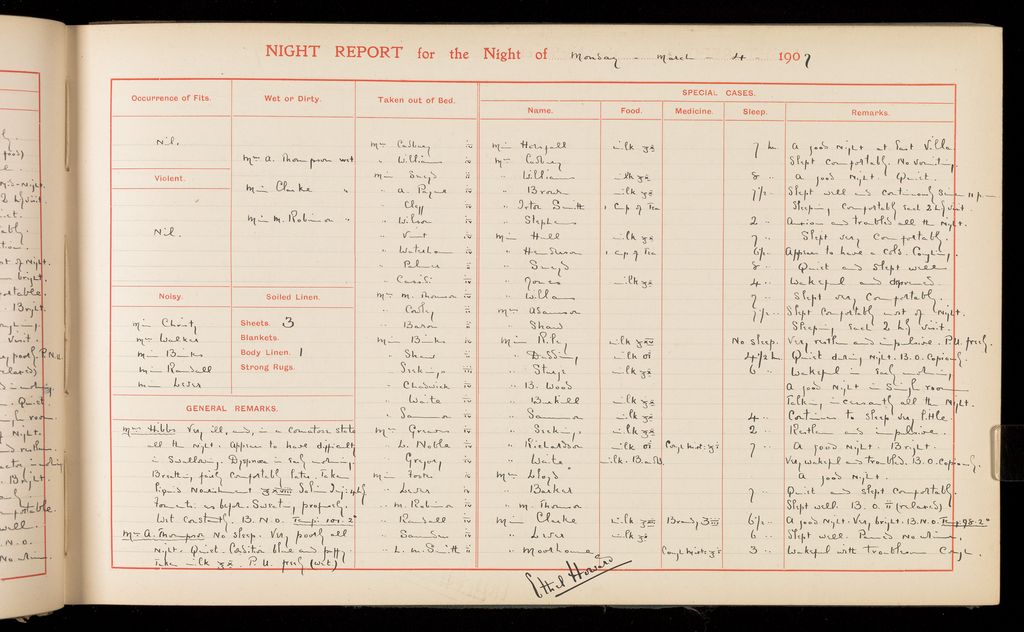 NIGHT REPORT for the Night of Monday - March - 4 - 1907
Occurrence of Fits.
Nil.
Violent.
Nil.
Noisy.
Miss Christy
Mrs Walker
Miss Binks
Miss Randall
Miss Lewis
Wet or Dirty.
Mrs A. Thompson wet
Miss Clarke "
Miss M. Robinson "
Soiled Linen.
Sheets. 3
Blankets.
Body Linen. 1
Strong Rugs.
GENERAL REMARKS.
Mrs Hibbs Very ill, and in a comatose state
all the night. Appears to have difficulty
in swallowing. Dyspnoea in early morning.
Breathing fairly comfortably later. Taken
liquid nourishment
Fomentations as before. Sweating profusely.
Wet constantly. B.N.O. Temp: 101.2°
Mrs A. Thompson No sleep. Very poorly all
night. Quiet. Condition blue and puffy.
Taken milk P.U. freely (wet)
Taken out of Bed.
Mrs Cadbury
" William
Miss Sneyd
" A. Payne
" Cleff
" Wilson
" Vint
" Waterhouse
" Palmer
Mrs M. Thomson
" Cadby
" Baron
Miss Binks
" Shaw
" Seckings
" Chadwick
" Waite
" Sammon
Mrs Gowan
" L. Noble
Gregory
Miss Foster
" Lewis
" M. Robinson
" Randall
" Saunders
" L. M. Smith
SPECIAL CASES.
Name. Food. Medicine. Sleep. Remarks.
Miss Horsfall milk 7 hrs A good night at East Villa
Mrs Cadbury Slept comfortably. No vomiting
" William milk 8 " A good night. Quiet.
" Brown milk 7½ " Slept well and continuously since 11 p.m.
" Irton Smith 1 cup of Tea Sleeping comfortably each 2 hly visit.
" Stephens 2 " Anxious and troubled all the night.
Miss Hull milk 7 " Slept very comfortably.
" Henderson 1 cup of Tea 6½ " Appears to have a cold. Coughing.
" Sneyd 8 " Quiet and slept well
" Jones milk 4 " Wakeful and depressed.
" Williams 7 " Slept very comfortably
Mrs Adamson 7½ " Slept comfortably most of night.
" Shaw Sleeping each 2 hly visit.
Miss Riley milk No sleep. Very restless and impulsive. P.U. freely.
" milk 4½ hrs Quiet during night. B.O. Copiously
" Sturge milk 6 " Wakeful in early morning
" B. Wood A good night in single room
" milk Talking incessantly all the night.
" Sammon milk 4 " Continues to sleep very little.
" Seckings milk 2 " Restless and impulsive.
" Richardson milk Cough mixt: 7 " A good night. Bright.
" Waite milk. Very wakeful and troubled. B.O. Copiously.
Mrs Lloyd A good night.
" Barker 7 " Quiet and slept comfortably
" M. Thomson Slept well. B.O. (relaxed)
Miss Clarke milk Brandy 6½ " A good night. Very bright. B.N.O. Temp: 98.2°
" Lewis milk 6 " Slept well. Passed no urine.
" Moorhouse Cough mixt: 3 " Wakeful with troublesome cough.
Ethel Howard